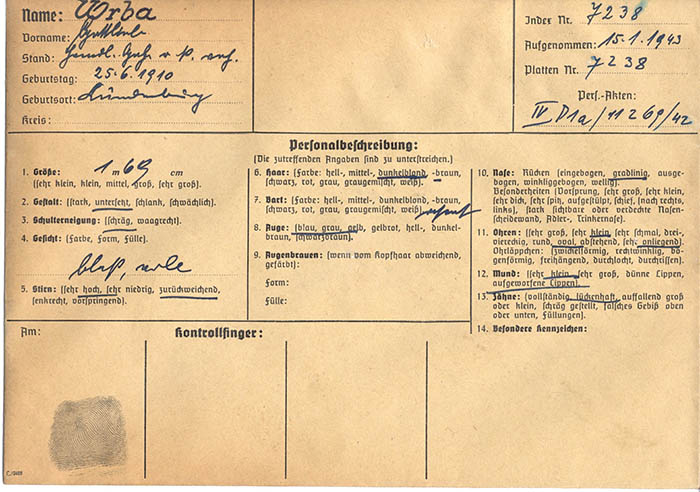 Name: Urba
Vorname: Gottlieb
Stand:
Geburtstag: 25.6.1910
Geburtsort: Lundenburg
Kreis:
Index Nr. 7238
Aufgenommen: 15.1.1943
Platten Nr. 7238
Pers.-Akten:
IV D1a/11269/42
Personalbeschreibung:
(Die zutreffenden Angaben sind zu unterstreichen.)
1. Größe: 1 m 69 cm
(sehr klein, klein, mittel, groß, sehr groß).
2. Gestalt: (stark, untersetzt, schlank, schwächlich).
3. Schulterneigung: (schräg, waagrecht).
4. Gesicht: (Farbe, Form, Fülle).
blaß, ovale
5. Stirn: (sehr hoch, sehr niedrig, zurückweichend,
senkrecht, vorspringend).
6. Haar: (Farbe: hell-, mittel-, dunkelblond, -braun,
schwarz, rot, grau, graugemischt, weiß).
7. Bart: (Farbe: hell-, mittel-, dunkelblond, -braun,
schwarz, rot, grau, graugemischt, weiß) rasiert
8. Auge: (blau, grau, gelb, gelbrot, hell-, dunkel-
braun, schwarzbraun).
9. Augenbrauen: (wenn vom Kopfhaar abweichend,
gefärbt):
Form:
Fülle:
10. Nase: Rücken (eingebogen, gradlinig, ausge-
bogen, winkliggebogen, wellig).
Besonderheiten (Vorsprung, sehr groß, sehr klein,
sehr dick, sehr spitz, aufgestülpt, schief, (nach rechts,
links), stark sichtbare oder verdeckte Nasen-
scheidewand, Adler-, Trinkernase).
11. Ohren: (sehr groß, sehr klein, sehr schmal, drei-,
viereckig, rund, oval, abstehend, sehr anliegend).
Ohrläppchen: (zwickelförmig, rechtwinklig, bo-
genförmig, freihängend, durchlocht, durchrissen).
12. Mund: (sehr klein, sehr groß, dünne Lippen,
aufgeworfene Lippen).
13. Zähne: (vollständig, lückenhaft, auffallend groß
oder klein, schräg gestellt, falsches Gebiß oben
oder unten, Füllungen).
14. Besondere Kennzeichen:
Am:
Kontrollfinger: